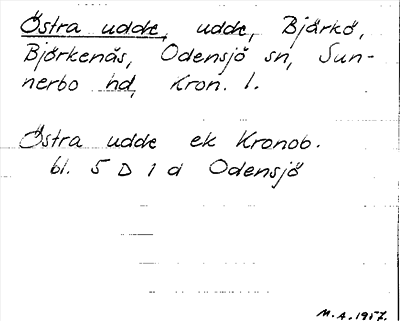 Östra udde, udde, Björkö,
Björkenäs, Odensjö sn, Sun-
nerbo hd, Kron. l.
Östra udde ek Kronob.
bl. 5 D 1 d Odensjö
M.A. 1957.